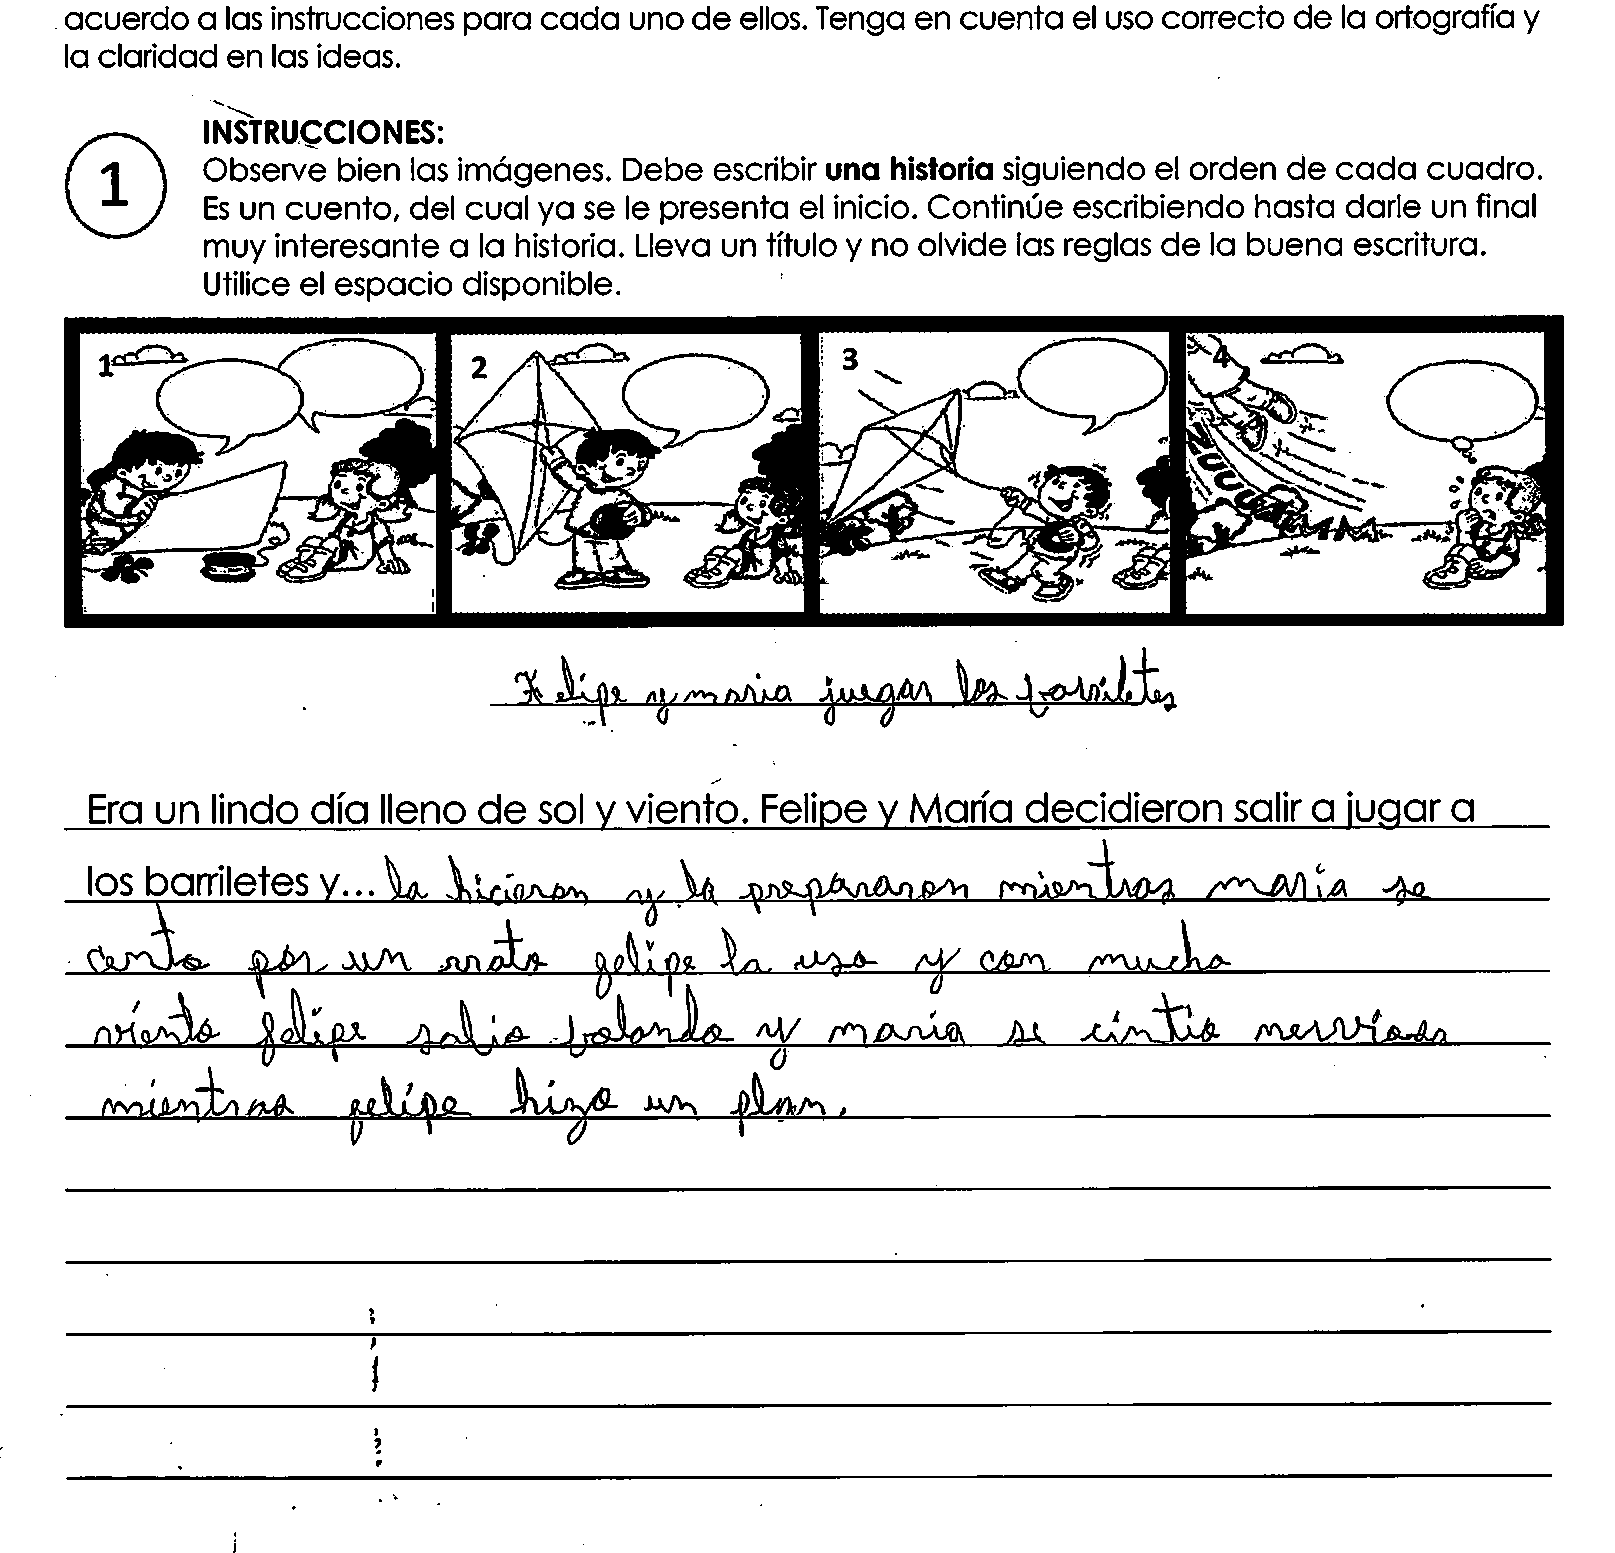 acuerdo a las instrucciones para cada uno de ellos. Tenga en cuenta el uso correcto de la ortografía y
la claridad en las ideas.
INSTRUCCIONES:
1
Observe bien las imágenes. Debe escribir una historia siguiendo el orden de cada cuadro.
Es un cuento, del cual ya se le presenta el inicio. Continúe escribiendo hasta darle un final
muy interesante a la historia. Lleva un título y no olvide las reglas de la buena escritura.
Utilice el espacio disponible.
1 2 3 4
Felipe y maria juegan los barriletes
Era un lindo día lleno de sol y viento. Felipe y María decidieron salir a jugar a
los barriletes y... la hicieron y la prepararon mientras maría se
cento por un rrato felipe la uso y con mucho
viento felipe salio bolando y maria se cintio nerviosa
mientras felipe hizo un plan.